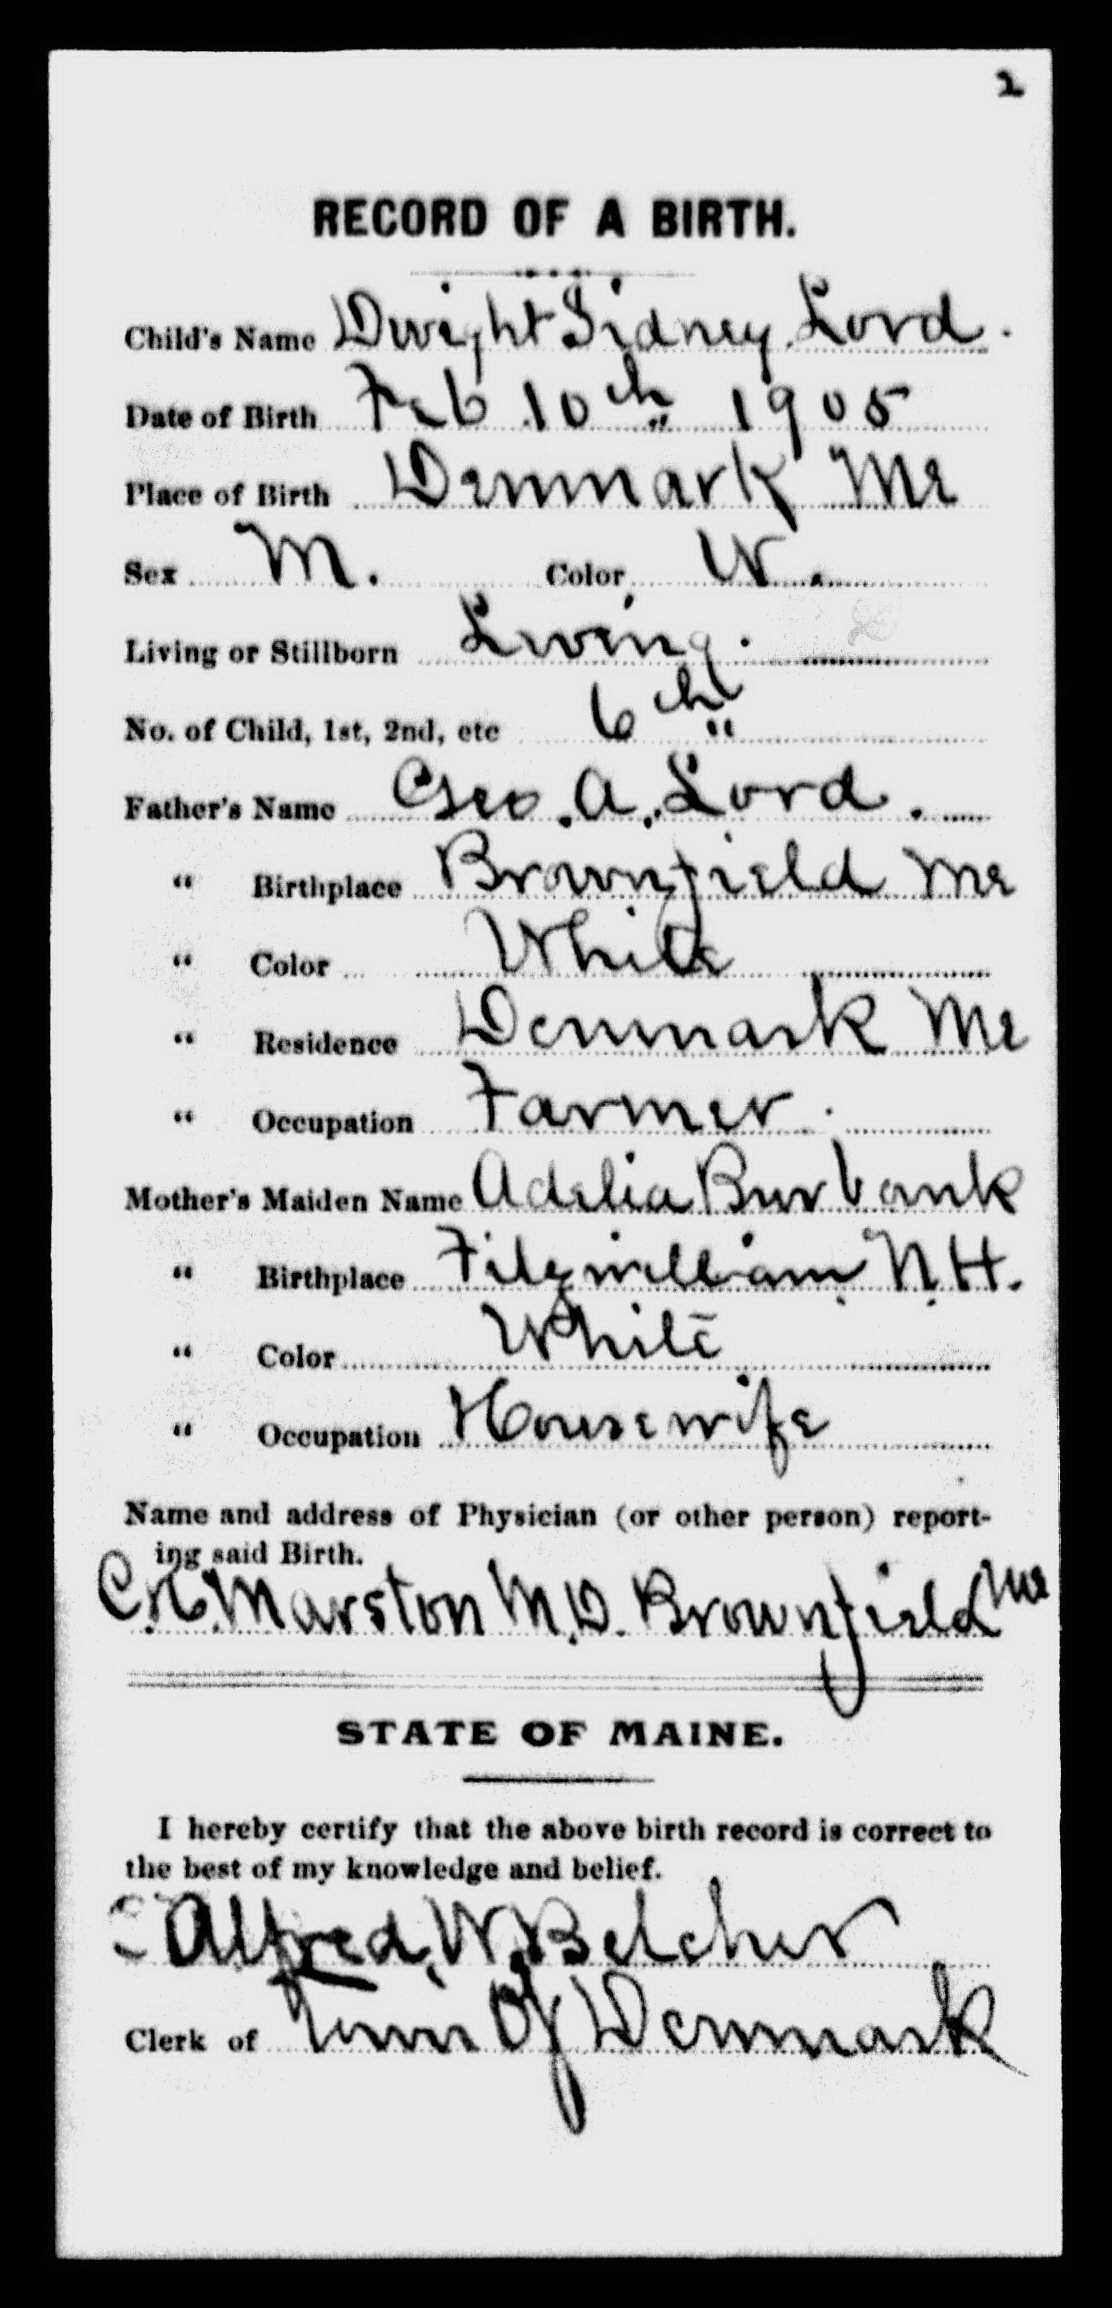 2
RECORD OF A BIRTH.
Child's Name Dwight Sidney Lord.
Date of Birth Feb 10th 1905
Place of Birth Denmark Me
Sex M. Color W.
Living or Stillborn Living.
No. of Child, 1st, 2nd, etc 6th
Father's Name Geo. A. Lord.
" Birthplace Brownfield Me
" Color White
" Residence Denmark Me
" Occupation Farmer.
Mother's Maiden Name Adelia Burbank
" Birthplace Fitzwilliam N.H.
" Color White
" Occupation Housewife
Name and address of Physician (or other person) report-
ing said Birth.
Marston M.D. Brownfield Me
STATE OF MAINE.
I hereby certify that the above birth record is correct to
the best of my knowledge and belief.
Alfred W. Belcher
Clerk of Town Of Denmark